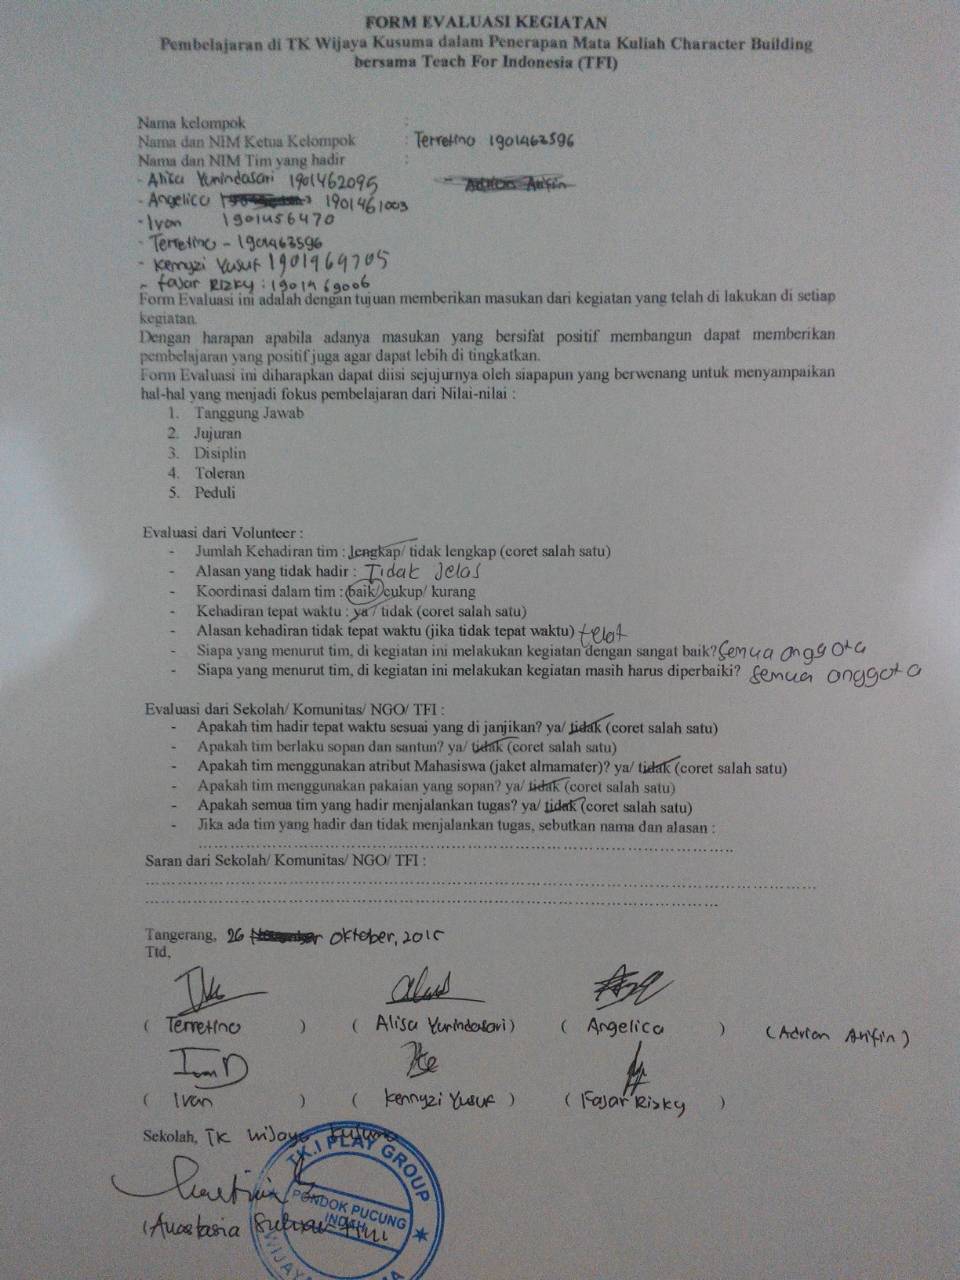 FORM EVALUASI KEGIATAN
Pembelajaran di TK Wijaya Kusuma dalam Penerapan Mata Kuliah Character Building
bersama Teach For Indonesia (TFI)
Nama kelompok :
Nama dan NIM Ketua Kelompok : Terretino 1901463596
Nama dan NIM Tim yang hadir :
- Alisa Yunindasari 1901462095 - Adrian Arifin
- Angelica 1901461003
- Ivan 1901456470
- Terretino - 1901463596
- Kennyzi Yusuf 1901969705
- Fajar Rizky : 1901969006
Form Evaluasi ini adalah dengan tujuan memberikan masukan dari kegiatan yang telah di lakukan di setiap
kegiatan.
Dengan harapan apabila adanya masukan yang bersifat positif membangun dapat memberikan
pembelajaran yang positif juga agar dapat lebih di tingkatkan.
Form Evaluasi ini diharapkan dapat diisi sejujurnya oleh siapapun yang berwenang untuk menyampaikan
hal-hal yang menjadi fokus pembelajaran dari Nilai-nilai :
1. Tanggung Jawab
2. Jujuran
3. Disiplin
4. Toleran
5. Peduli
Evaluasi dari Volunteer :
- Jumlah Kehadiran tim : lengkap/ tidak lengkap (coret salah satu)
- Alasan yang tidak hadir : Tidak Jelas
- Koordinasi dalam tim : baik/ cukup/ kurang
- Kehadiran tepat waktu : ya / tidak (coret salah satu)
- Alasan kehadiran tidak tepat waktu (jika tidak tepat waktu) telat
- Siapa yang menurut tim, di kegiatan ini melakukan kegiatan dengan sangat baik? Semua anggota
- Siapa yang menurut tim, di kegiatan ini melakukan kegiatan masih harus diperbaiki? Semua anggota
Evaluasi dari Sekolah/ Komunitas/ NGO/ TFI :
- Apakah tim hadir tepat waktu sesuai yang di janjikan? ya/ tidak (coret salah satu)
- Apakah tim berlaku sopan dan santun? ya/ tidak (coret salah satu)
- Apakah tim menggunakan atribut Mahasiswa (jaket almamater)? ya/ tidak (coret salah satu)
- Apakah tim menggunakan pakaian yang sopan? ya/ tidak (coret salah satu)
- Apakah semua tim yang hadir menjalankan tugas? ya/ tidak (coret salah satu)
- Jika ada tim yang hadir dan tidak menjalankan tugas, sebutkan nama dan alasan :
Saran dari Sekolah/ Komunitas/ NGO/ TFI :
Tangerang, 26 Oktober, 2015
Ttd,
( Terretino ) ( Alisa Yunindasari ) ( Angelica ) (Adrian Arifin)
( Ivan ) ( Kennyzi Yusuf ) ( Fajar Rizky )
Sekolah, TK Wijaya Kusuma
TK.I PLAY GROUP
PONDOK PUCUNG
INDAH
WIJAYA
(Anastasia